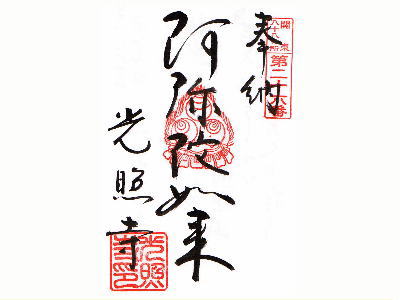 関東
八十八ヶ所
第二十六番
奉納
阿弥陀如来
光照寺
光照寺印